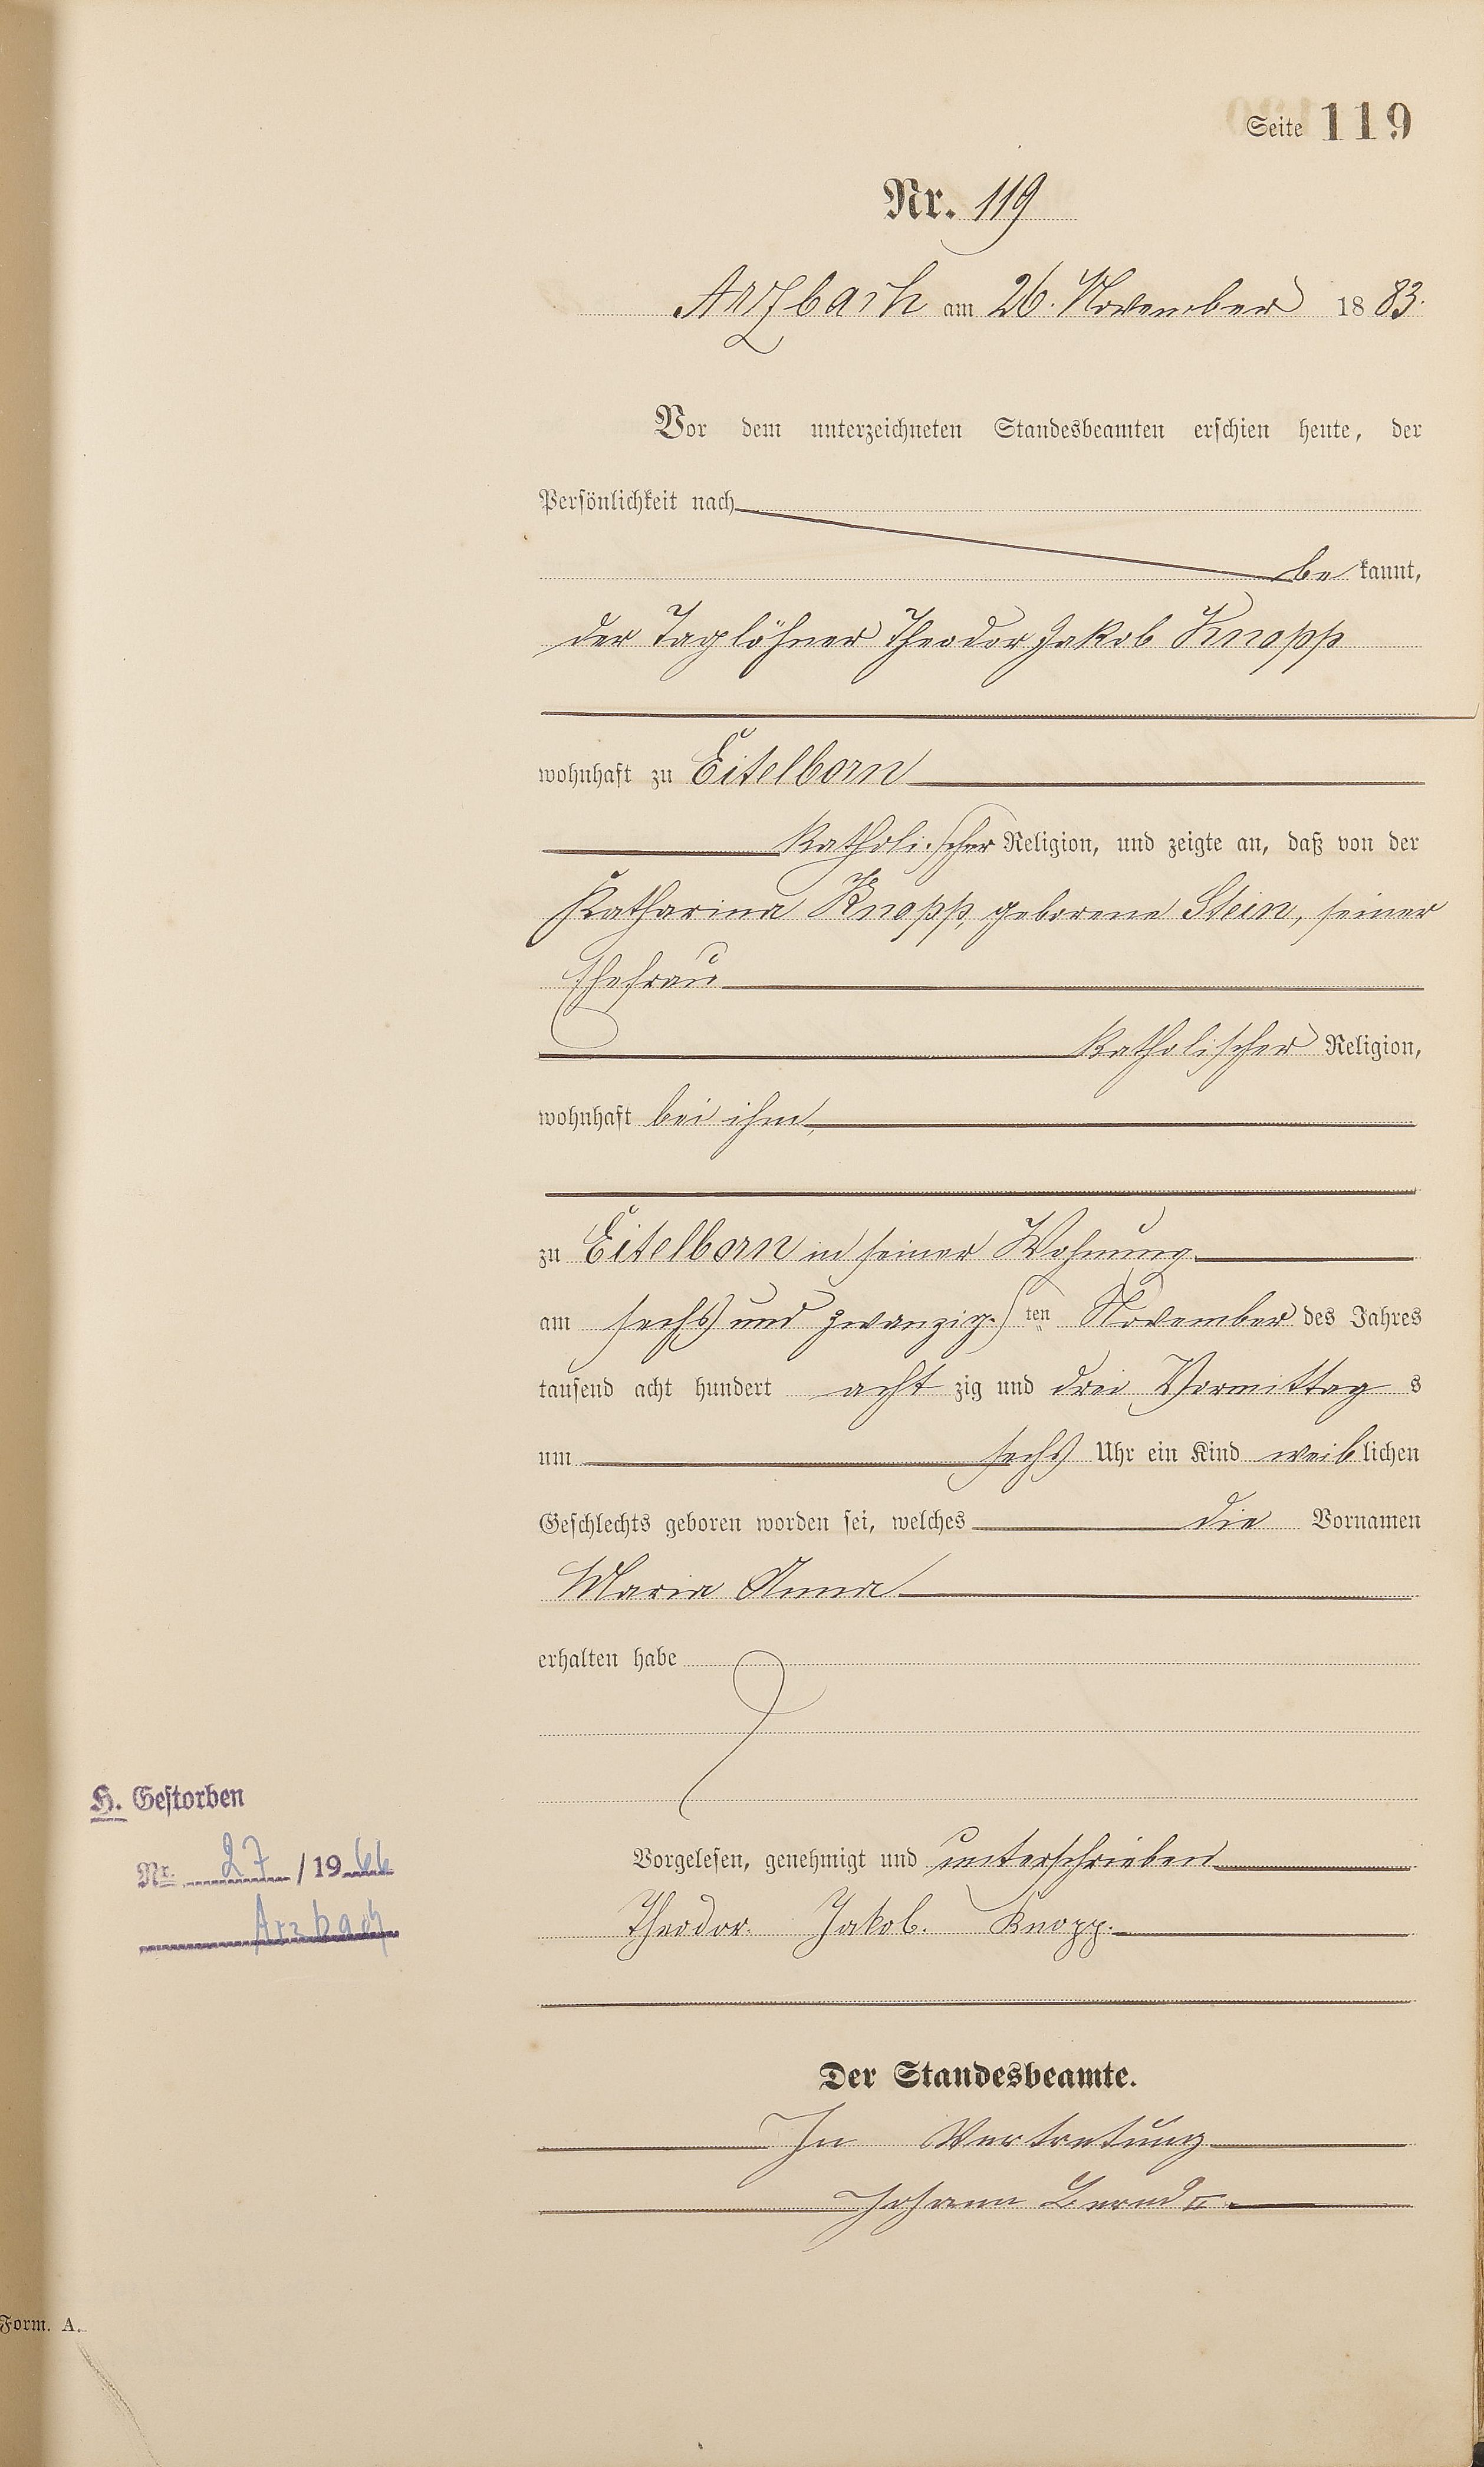 Seite 119
Nr. 119
Arzbach am 26. November 1883.
Vor dem unterzeichneten Standesbeamten erschien heute, der
Persönlichkeit nach
be kannt,
der Taglöhner Theodor Jakob Knopp
wohnhaft zu Eitelborn
katholischer Religion, und zeigte an, daß von der
Katharina Knopp, geborene Stein, seiner
Ehefrau
katholischer Religion,
wohnhaft bei ihm,
zu Eitelborn in seiner Wohnung
am sechs und zwanzig ten November des Jahres
tausend acht hundert acht zig und drei Vormittag s
um sechs Uhr ein Kind weiblichen
Geschlechts geboren worden sei, welches die Vornamen
Maria Anna
erhalten habe
H. Gestorben
Nr. 27 / 1966
Arzbach
Vorgelesen, genehmigt und unterschrieben
Theodor. Jakob. Knopp.
Der Standesbeamte.
In Vertretung
Johann Bernd II.
Form. A.